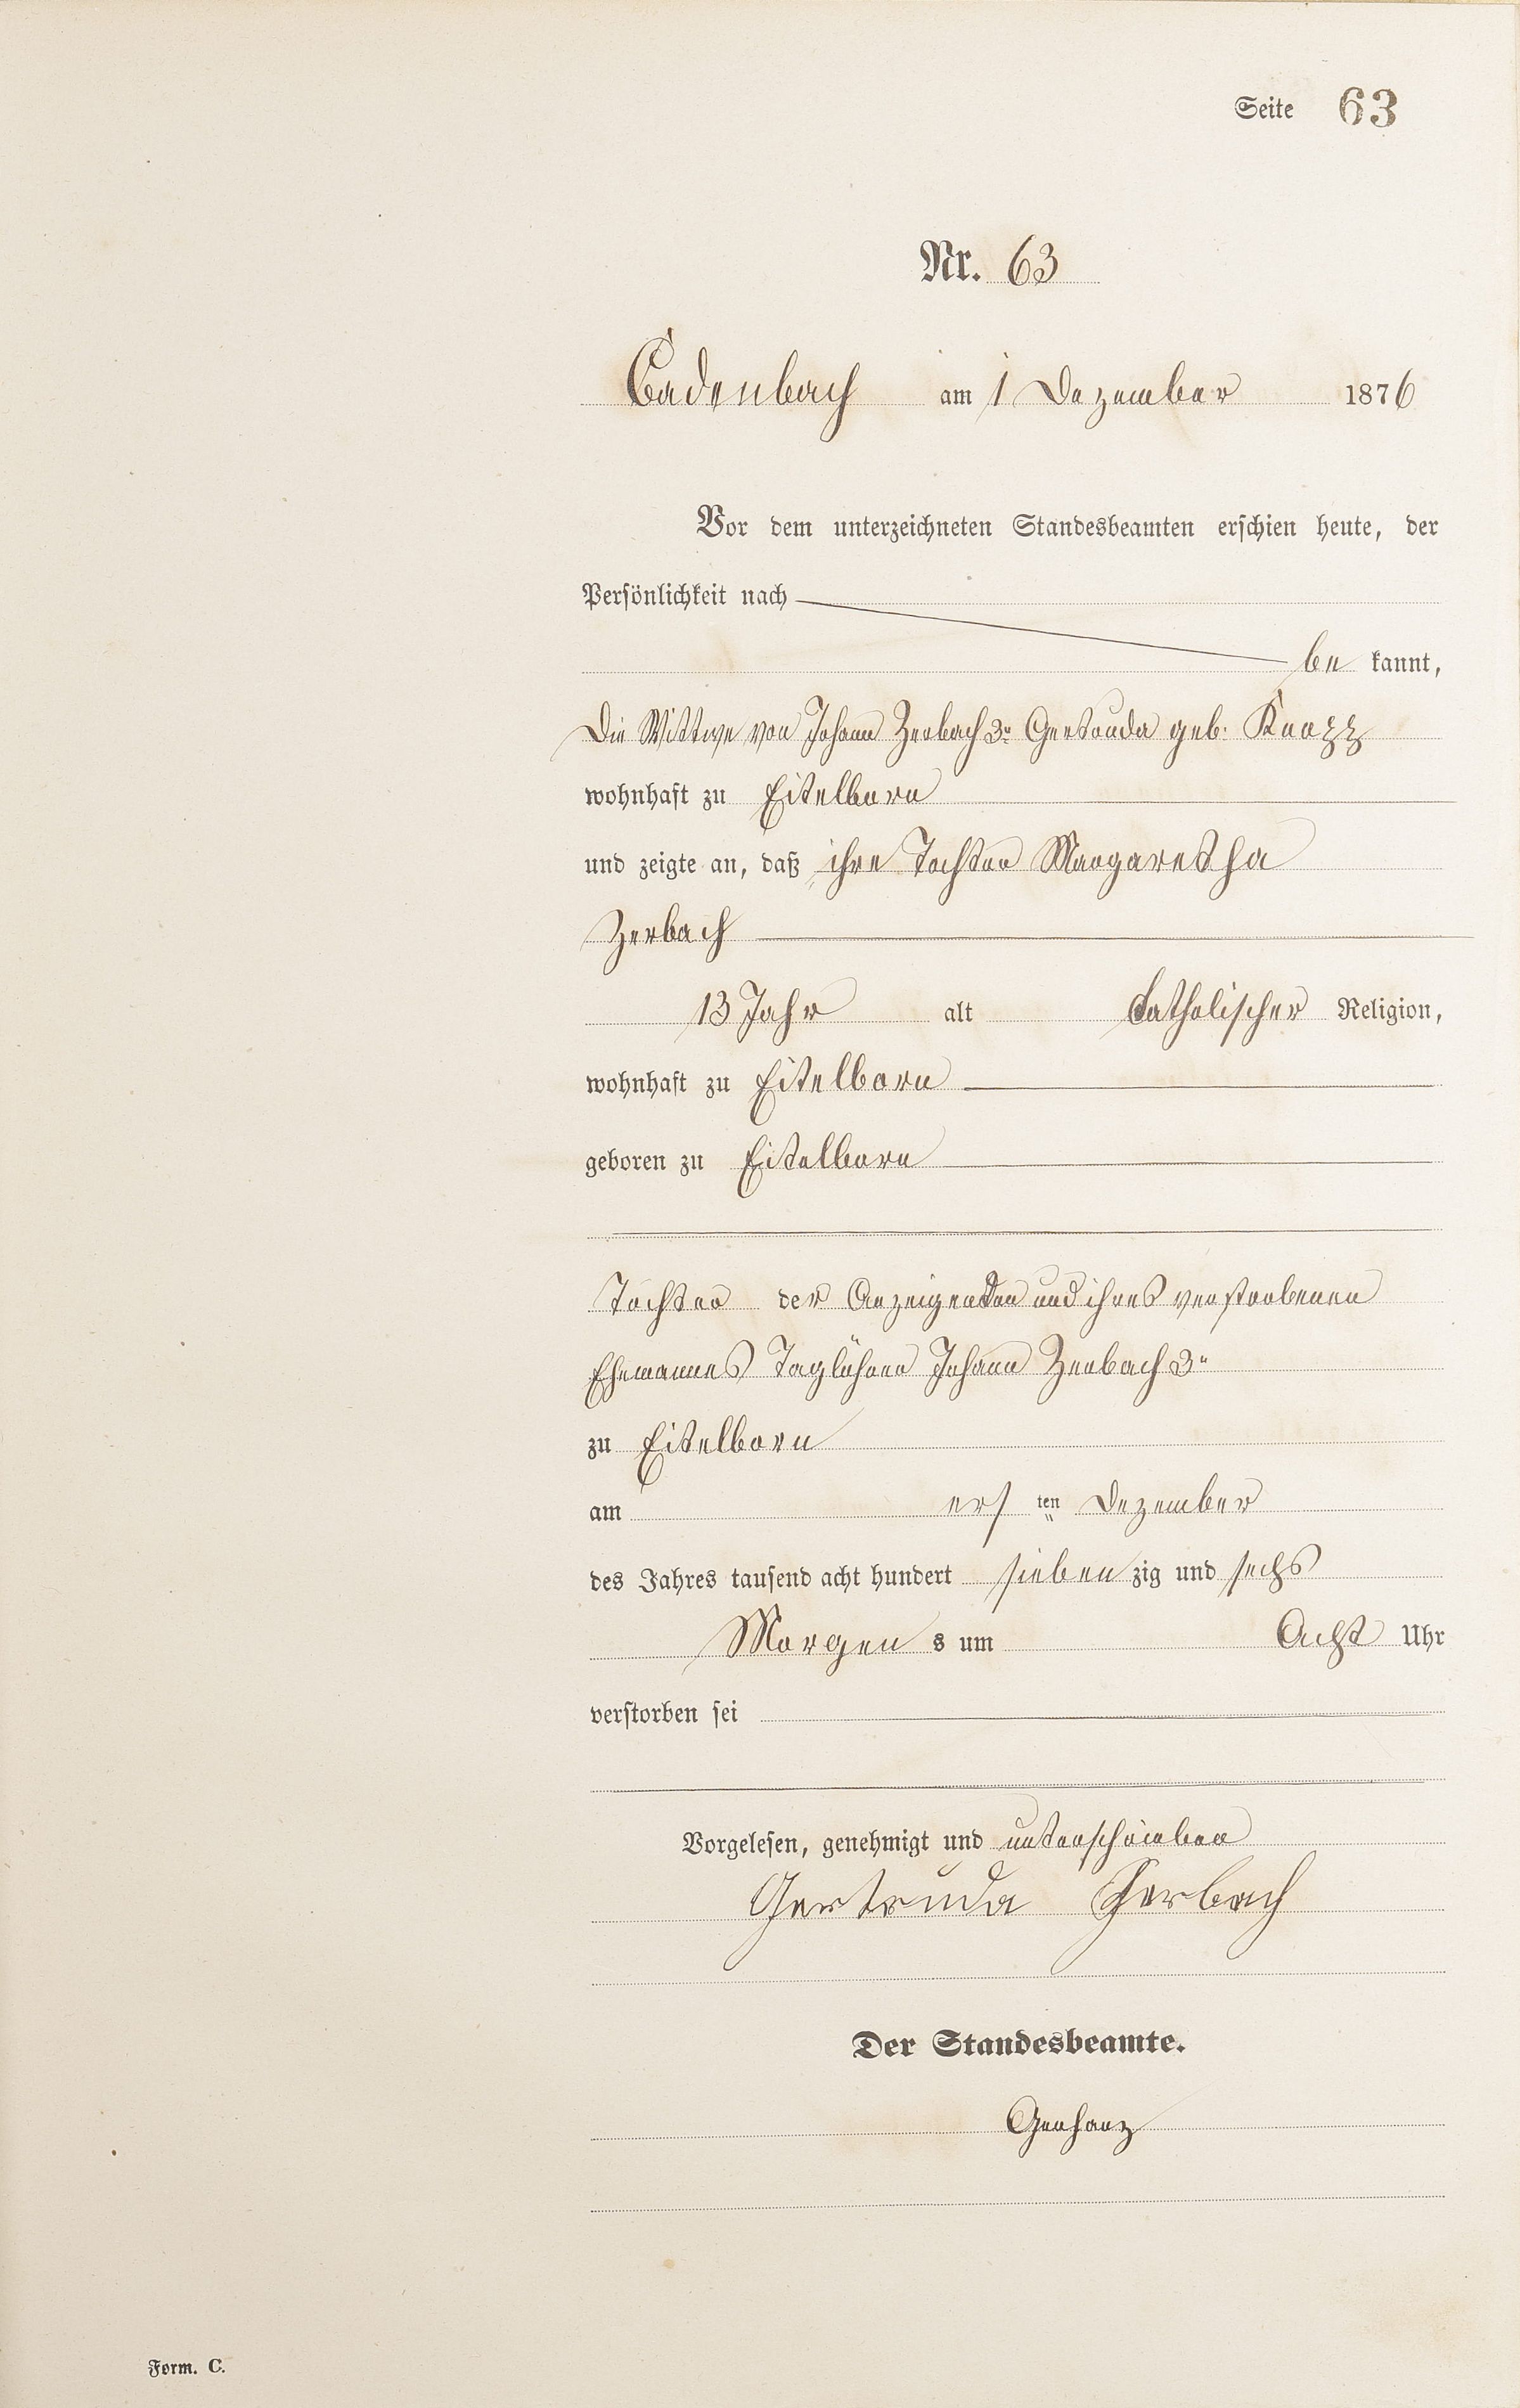 Seite 63
Nr. 63
Cadenbach am 1 Dezember 1876
Vor dem unterzeichneten Standesbeamten erschien heute, der
Persönlichkeit nach
be kannt,
Die Wittwe von Johann Zerbach 3r Gertruda geb. Knopp
wohnhaft zu Eitelborn
und zeigte an, daß ihre Tochter Margaretha
Zerbach
13 Jahr alt katholischer Religion,
wohnhaft zu Eitelborn
geboren zu Eitelborn
Tochter der Anzeigenden und ihres verstorbenen
Ehemannes Taglöhner Johann Zerbach 3r
zu Eitelborn
am ers ten Dezember
des Jahres tausend acht hundert sieben zig und sechs
Morgen s um Acht Uhr
verstorben sei
Vorgelesen, genehmigt und unterschrieben
Gertruda Zerbach
Der Standesbeamte.
Gerharz
Form. C.